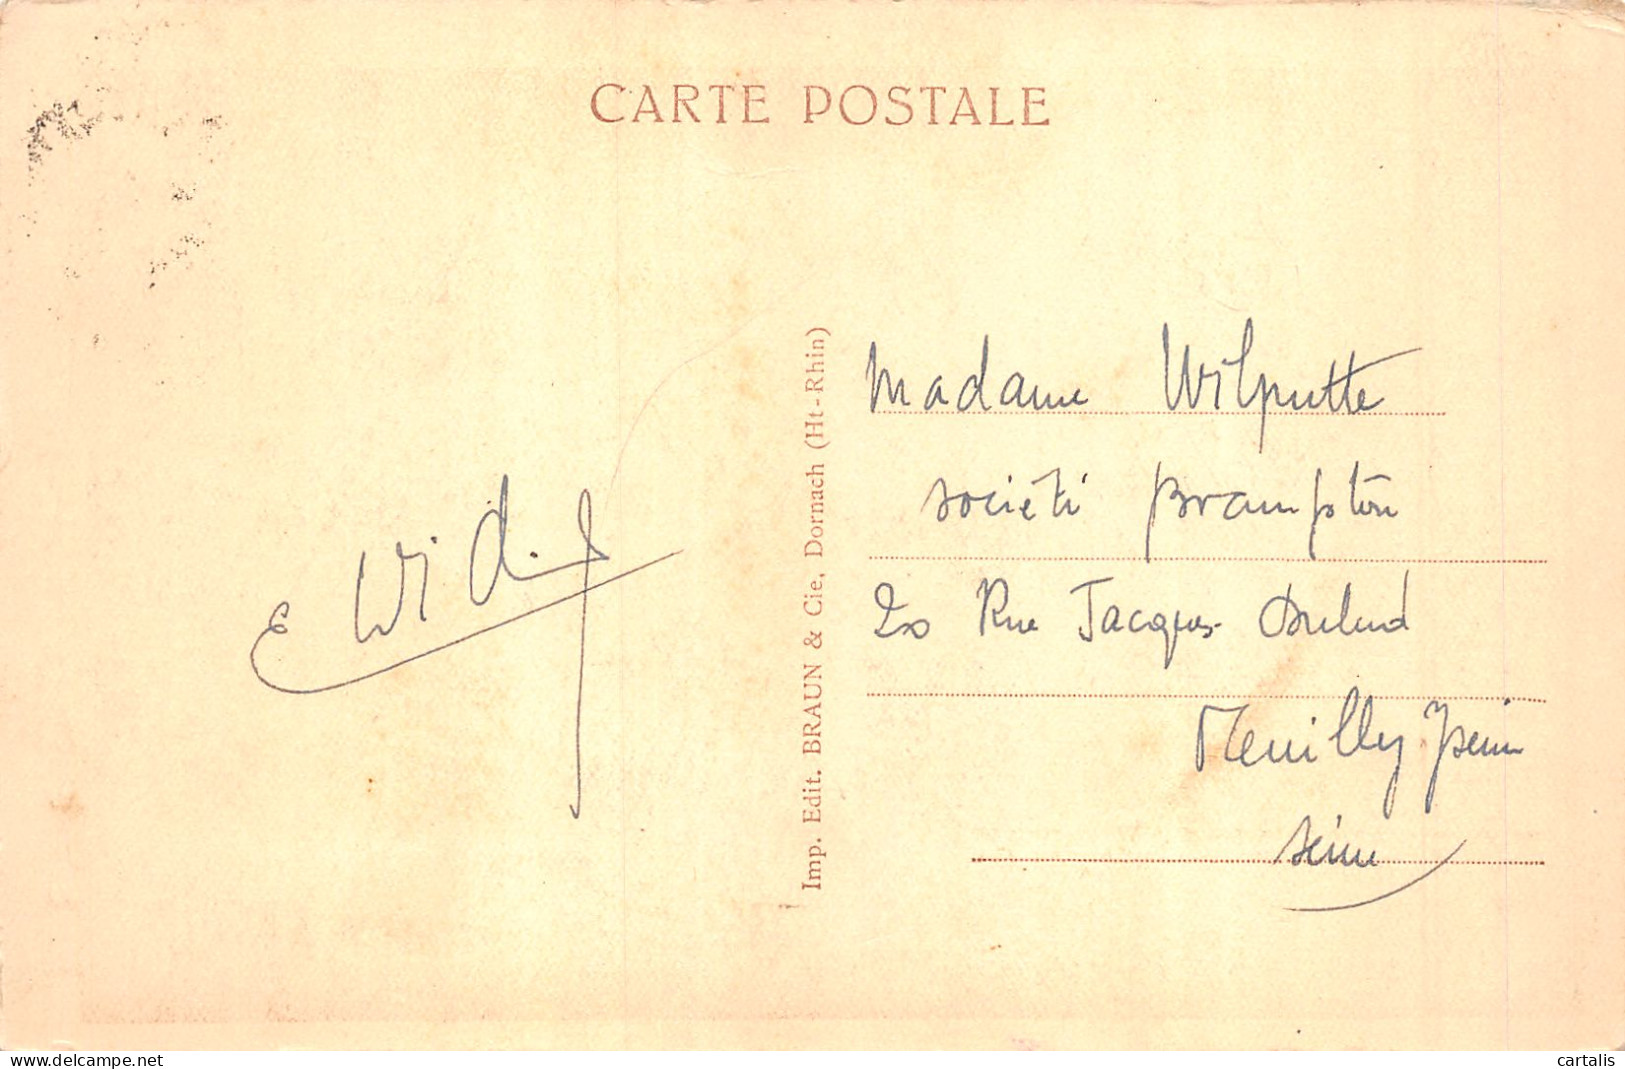 CARTE POSTALE
Imp. Edit. BRAUN & Cie, Dornach (Ht-Rhin)
E
Madame Wilputte
société Brampton
20 Rue Jacques Dulud
Neuilly s/Seine
Seine
delcampe.net
cartalis